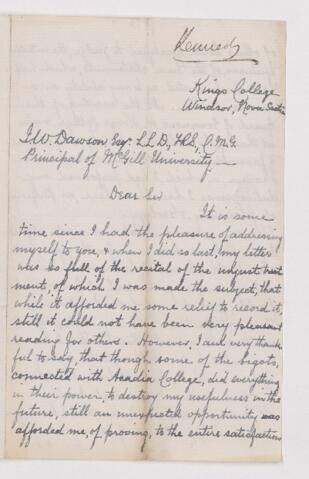 Kennedy
Kings College
Windsor, Nova Scotia
J. W. Dawson Esq. LLD, FRS, C.M.G.
Principal of McGill University —
Dear Sir
It is some
time since I had the pleasure of addressing
myself to you, & when I did so last, my letter
was so full of the recital of the unjust treat
ment, of which I was made the subject, that
while it afforded me some relief to record it,
still it could not have been very pleasant
reading for others. However, I am very thank
ful to say, that though some of the bigots,
connected with Acadia College, did everything
in their power, to destroy my usefulness in the
future, still an unexpected opportunity was
afforded me, of proving, to the entire satisfaction